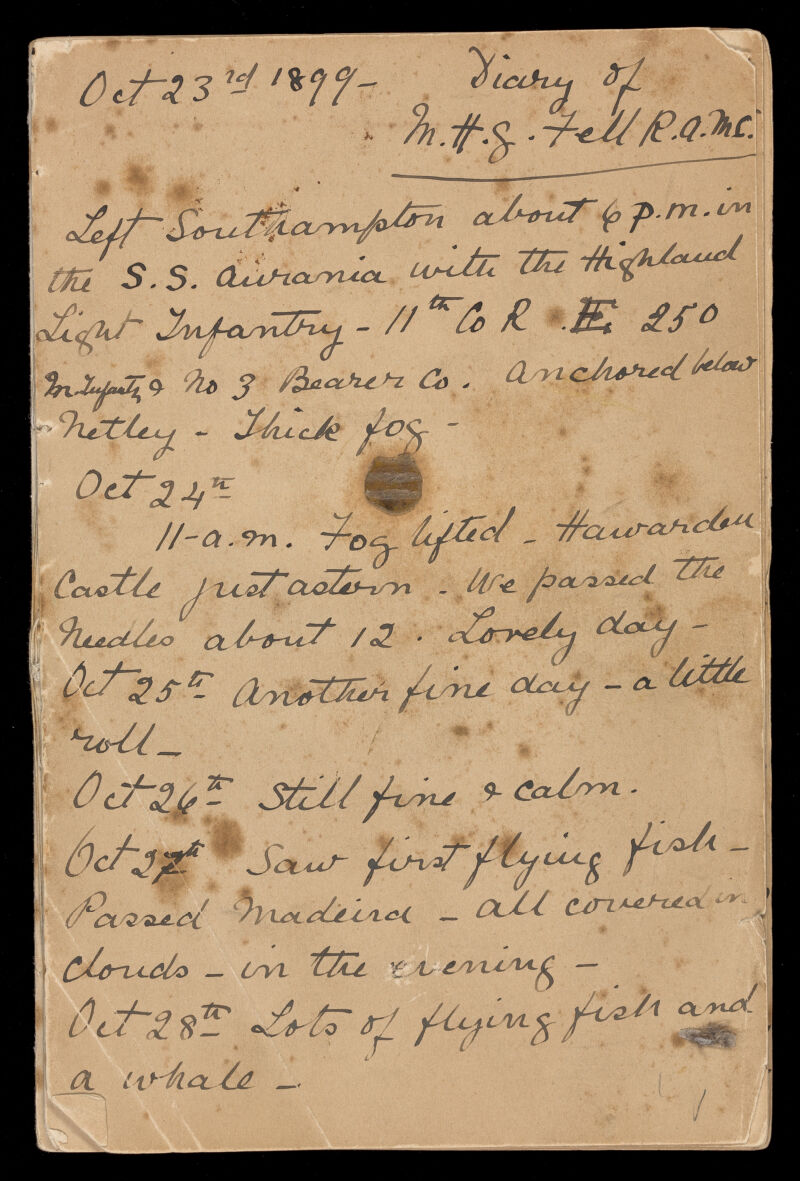 Oct 23rd 1899 - Diary of
M.H.G. Fell R.A.M.C.
Left Southampton about 6 p.m. in
the S.S. Aurania with the Highland
Light Infantry - 11th Co R.E. 250
M. Infanty & No 3 Bearer Co. Anchored below
Netley - Thick fog -
Oct 24th
11-a.m. Fog lifted - Hawarden
Castle just astern. We passed the
Needles about 12. Lovely day -
Oct 25th Another fine day - a little
roll -
Oct 26th Still fine & calm.
Oct 27th Saw first flying fish -
Passed Madeira - all covered in
clouds - in the evening -
Oct 28th Lots of flying fish and
a whale -